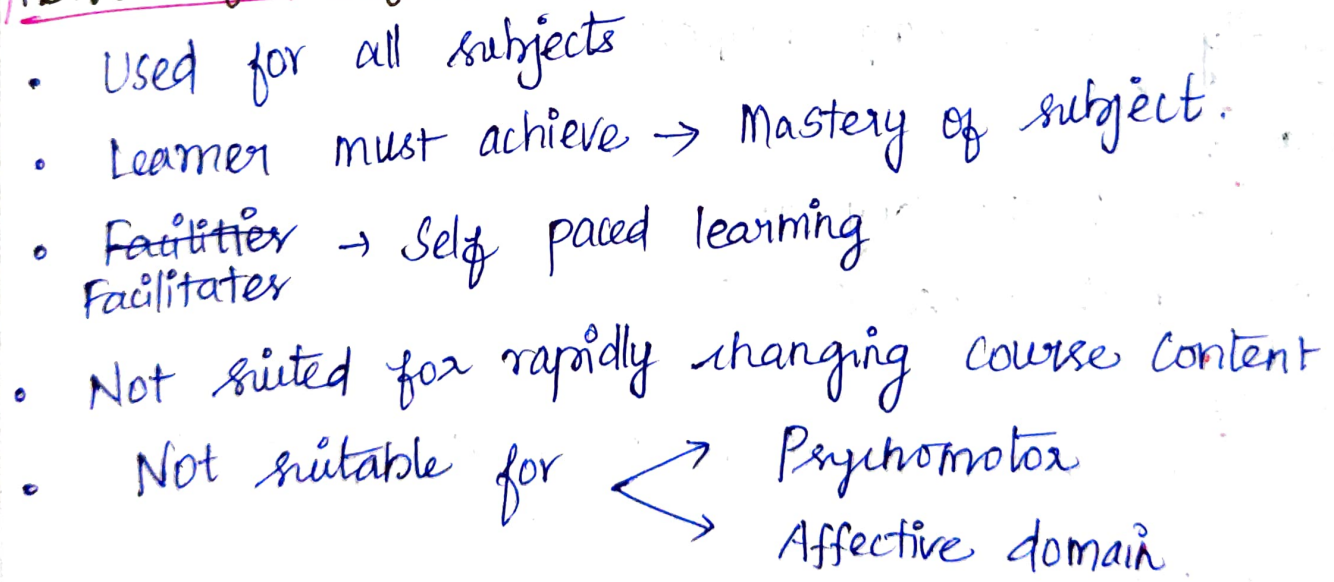 • Used for all subjects
• Learner must achieve → Mastery of subject.
• Facilities → Self paced learning
Facilitates
• Not suited for rapidly changing course content
• Not suitable for → Psychomotor
→ Affective domain